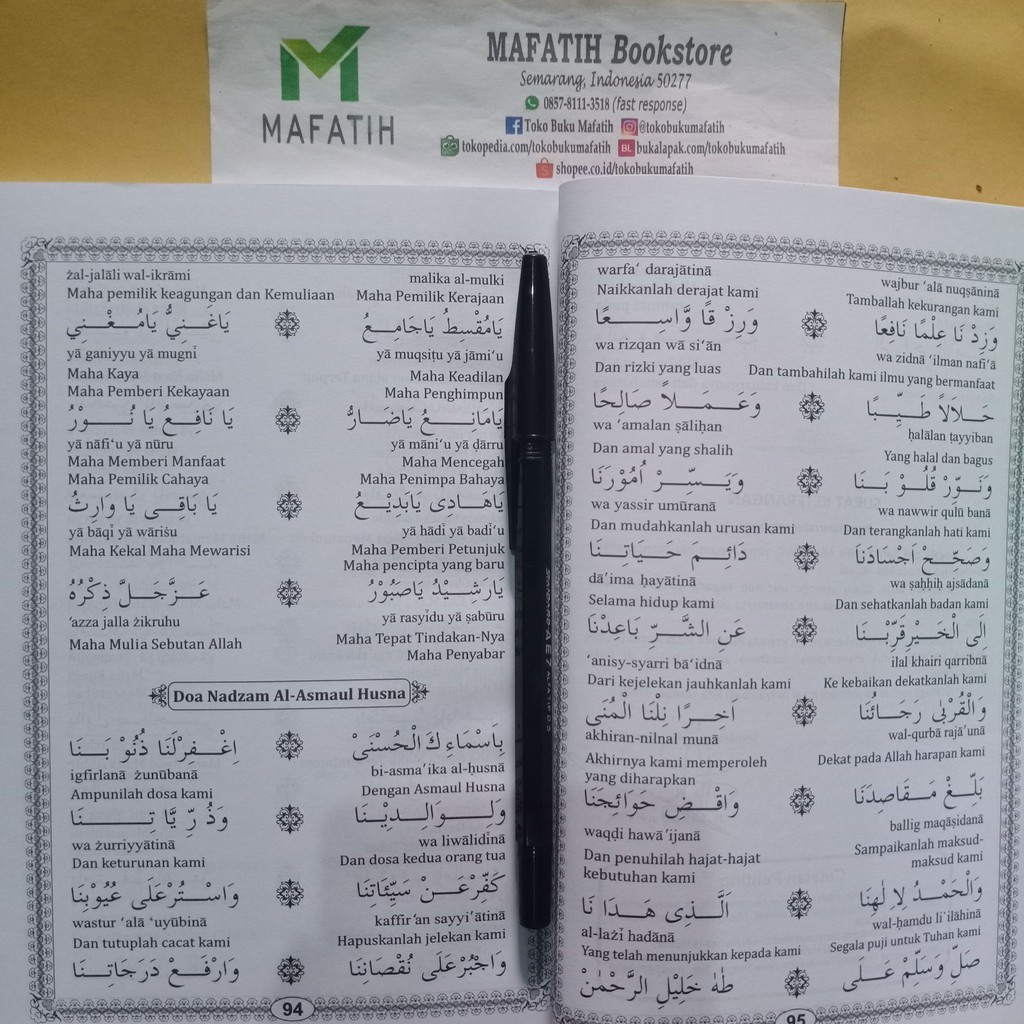 MAFATIH
MAFATIH Bookstore
Semarang, Indonesia 50277
0857-8111-3518 (fast response)
Toko Buku Mafatih @tokobukumafatih
tokopedia.com/tokobukumafatih BL bukalapak.com/tokobukumafatih
shopee.co.id/tokobukumafatih
malika al-mulki żal-jalāli wal-ikrāmi
Maha Pemilik Kerajaan Maha pemilik keagungan dan Kemuliaan
يَامُقْسِطُ يَاجَامِعُ يَاغَنِيُّ يَامُغْنِي
yā muqsiṭu yā jāmi‘u yā ganiyyu yā mugnī
Maha Keadilan Maha Kaya
Maha Penghimpun Maha Pemberi Kekayaan
يَامَانِعُ يَاضَارُّ يَا نَافِعُ يَا نُوْرُ
yā māni‘u yā ḍārru yā nāfi‘u yā nūru
Maha Mencegah Maha Memberi Manfaat
Maha Penimpa Bahaya Maha Pemilik Cahaya
يَاهَادِى يَابَدِيْعُ يَا بَاقِى يَا وَارِثُ
yā hādī yā badī‘u yā bāqī yā wāriṡu
Maha Pemberi Petunjuk Maha Kekal Maha Mewarisi
Maha pencipta yang baru
يَارَشِيْدُ يَاصَبُوْرُ عَزَّجَلَّ ذِكْرُهُ
yā rasyīdu yā ṣabūru ‘azza jalla żikruhu
Maha Tepat Tindakan-Nya Maha Mulia Sebutan Allah
Maha Penyabar
Doa Nadzam Al-Asmaul Husna
بِاَسْمَاءِكَ الْحُسْنَىْ اِغْفِرْلَنَا ذُنُوْبَنَا
bi-asma’ika al-ḥusnā igfirlanā żunūbanā
Dengan Asmaul Husna Ampunilah dosa kami
وَلِوَالِدِيْنَا وَذُرِّيَّاتِنَا
wa liwālidinā wa żurriyyātinā
Dan dosa kedua orang tua Dan keturunan kami
كَفِّرْعَنْ سَيِّئَاتِنَا وَاسْتُرْعَلَى عُيُوْبِنَا
kaffir‘an sayyi’ātinā wastur ‘alā ‘uyūbinā
Hapuskanlah jelekan kami Dan tutuplah cacat kami
وَاجْبُرْعَلَى نُقْصَانِنَا وَارْفَعْ دَرَجَاتِنَا
94
wajbur ‘alā nuqṣāninā warfa‘ darajātinā
Tamballah kekurangan kami Naikkanlah derajat kami
وَزِدْ نَا عِلْمًا نَافِعًا وَرِزْقًا وَّاسِعًا
wa zidnā ‘ilman nafi‘ā wa rizqan wā si‘ān
Dan tambahilah kami ilmu yang bermanfaat Dan rizki yang luas
حَلَالاً طَيِّبًا وَعَمَلاً صَالِحًا
ḥalālan ṭayyiban wa ‘amalan ṣāliḥan
Yang halal dan bagus Dan amal yang shalih
وَنَوِّرْ قُلُوْبَنَا وَيَسِّرْ اُمُوْرَنَا
wa nawwir qulū banā wa yassir umūranā
Dan terangkanlah hati kami Dan mudahkanlah urusan kami
وَصَحِّحْ اَجْسَادَنَا دَائِمَ حَيَاتِنَا
wa ṣaḥḥiḥ ajsādanā dā’ima ḥayātinā
Dan sehatkanlah badan kami Selama hidup kami
اِلَى الْخَيْرِقَرِّبْنَا عَنِ الشَّرِّ بَاعِدْنَا
ilal khairi qarribnā ‘anisy-syarri bā‘idnā
Ke kebaikan dekatkanlah kami Dari kejelekan jauhkanlah kami
وَالْقُرْبٰى رَجَائُنَا اَخِرًا نِلْنَا الْمُنَى
wal-qurbā rajā’unā akhiran-nilnal munā
Dekat pada Allah harapan kami Akhirnya kami memperoleh
yang diharapkan
بَلِّغْ مَقَاصِدَنَا وَاقْضِ حَوَائِجَنَا
ballig maqāṣidanā waqdi hawā’ijanā
Sampaikanlah maksud- Dan penuhilah hajat-hajat
maksud kami kebutuhan kami
وَالْحَمْدُ لِاِلٰهِنَا الَّذِى هَدَا نَا
wal-ḥamdu li’ilāhinā al-lażī hadānā
Segala puji untuk Tuhan kami Yang telah menunjukkan kepada kami
صَلِّ وَسَلِّمْ عَلَى طٰهٰ خَلِيْلِ الرَّحْمٰنْ
95